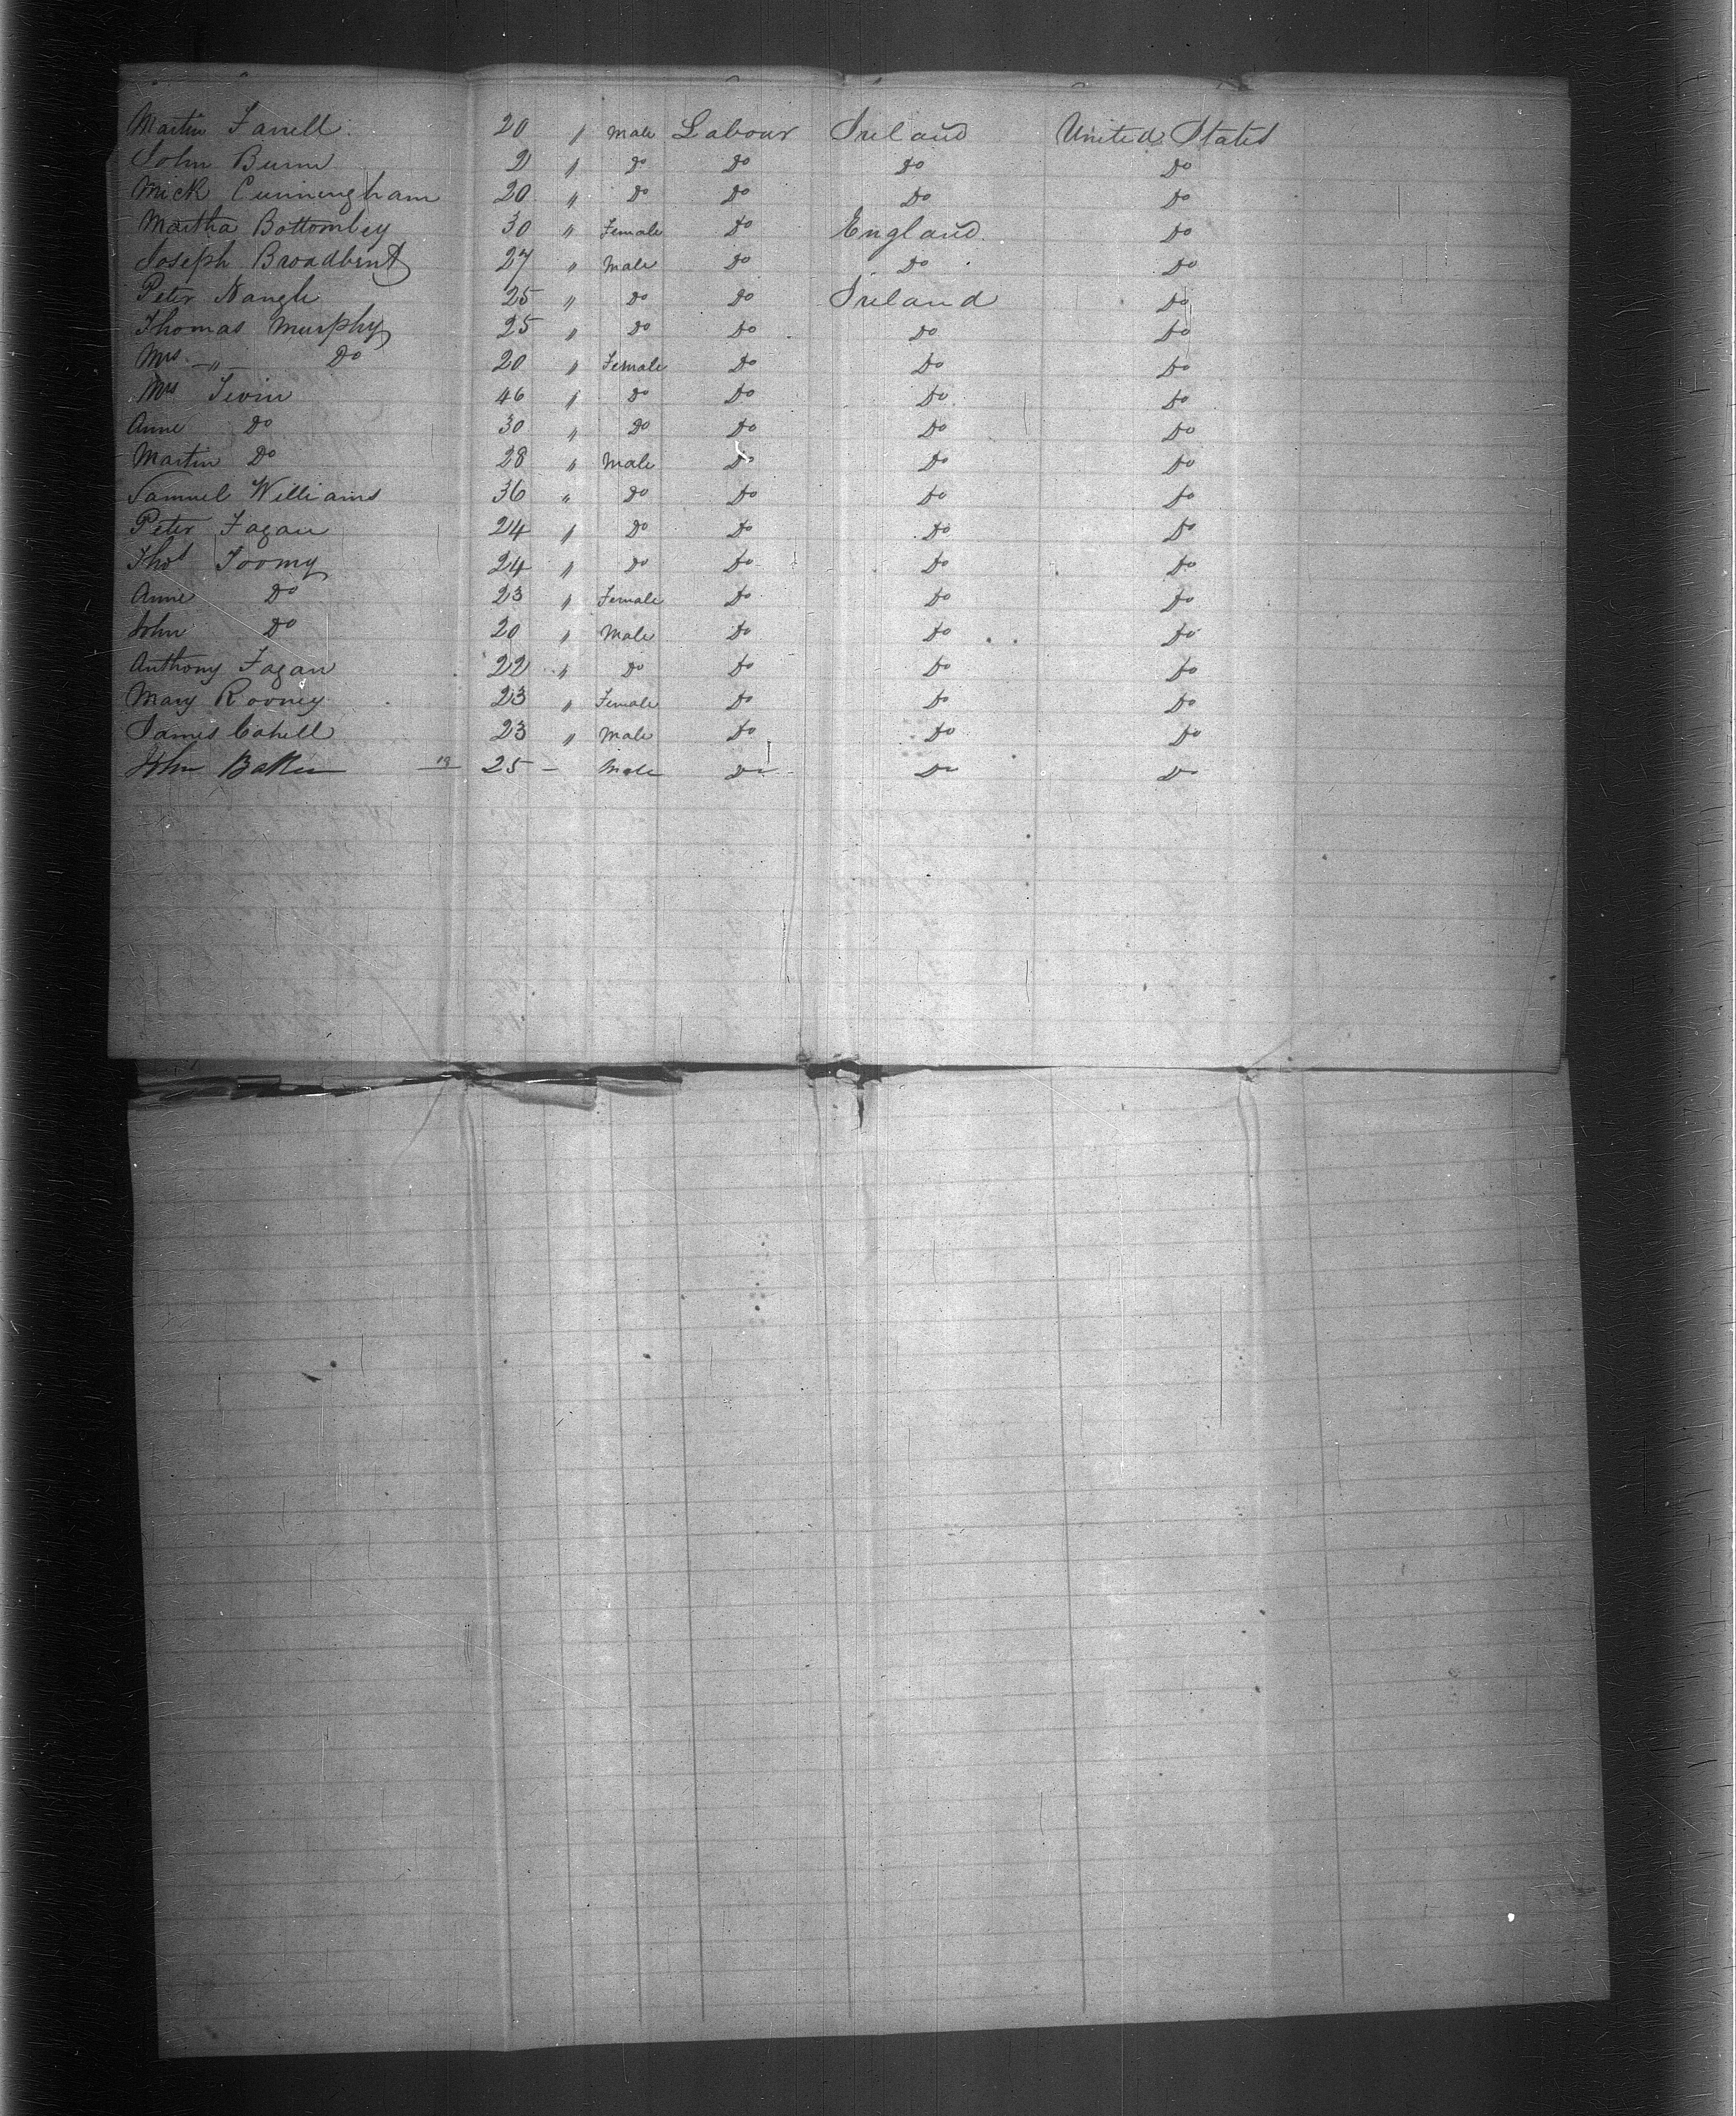 Martin Farrell 20 " Male Labour Ireland United States
John Burn 21 " Do Do Do Do
Mick Cunningham 20 " Do Do Do Do
Martha Bottomley 30 " Female Do England Do
Joseph Broadbent 27 " Male Do Do Do
Peter Nangle 25 " Do Do Ireland Do
Thomas Murphy 25 " Do Do Do Do
Mrs " Do 20 " Female Do Do Do
Mrs 46 " Do Do Do Do
Anne Do 30 " Do Do Do Do
Martin Do 28 " Male Do Do Do
Samuel Williams 36 " Do Do Do Do
Peter Fagan 24 " Do Do Do Do
Thos Toomy 24 " Do Do Do Do
Anne Do 23 " Female Do Do Do
John Do 20 " Male Do Do Do
Anthony Fagan 22 " Do Do Do Do
Mary Rooney 23 " Female Do Do Do
James Cahill 23 " Male Do Do Do
John Baker 25 – Male Do Do Do